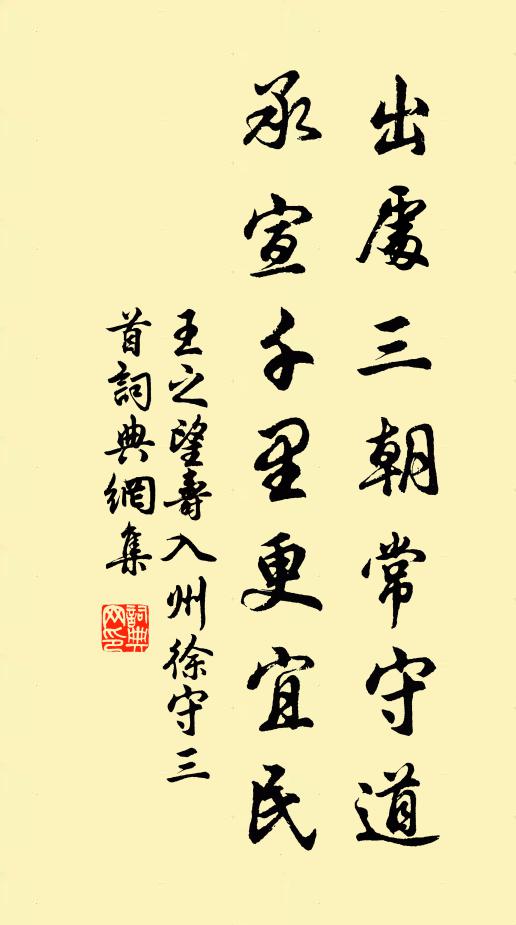 出處三朝常守道
承宣千里更宜民
王之望壽入州徐守三
首詞典網集
詞典网印